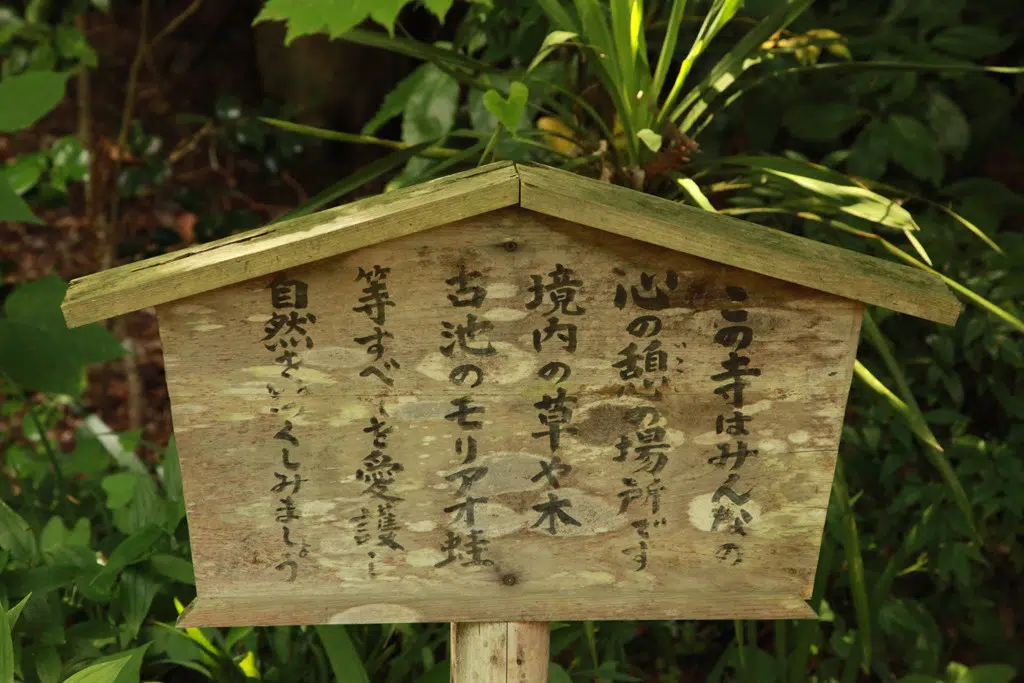 この寺はみんなの
心の憩の場所です
境内の草や木
古池のモリアオ蛙
等すべてを愛護し
自然をいつくしみましょう